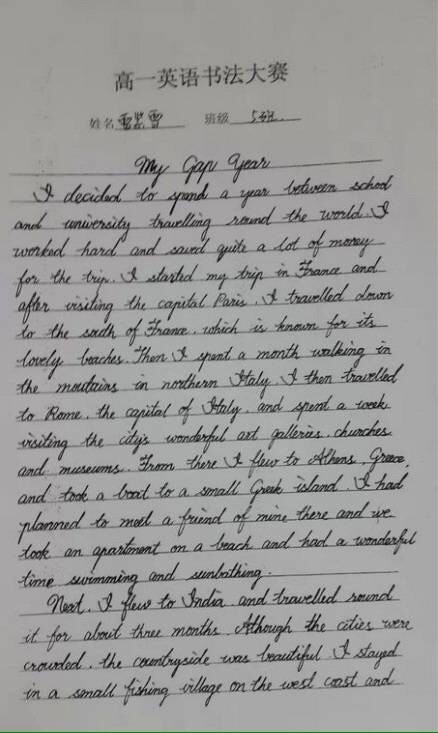 高一英语书法大赛
姓名 班级 5班.
My Gap Year
I decided to spend a year between school
and university travelling round the world. I
worked hard and saved quite a lot of money
for the trip. I started my trip in France and
after visiting the capital Paris, I travelled down
to the south of France, which is known for its
lovely beaches. Then I spent a month walking in
the moutains in northern Italy. I then travelled
to Rome, the capital of Italy, and spent a week
visiting the city's wonderful art galleries, churches
and museums. From there I flew to Athens, Greece,
and took a boat to a small Greek island. I had
planned to meet a friend of mine there and we
took an apartment on a beach and had a wonderful
time swimming and sunbathing.
Next, I flew to India and travelled round
it for about three months. Although the cities were
crowded, the countryside was beautiful. I stayed
in a small fishing village on the west coast and